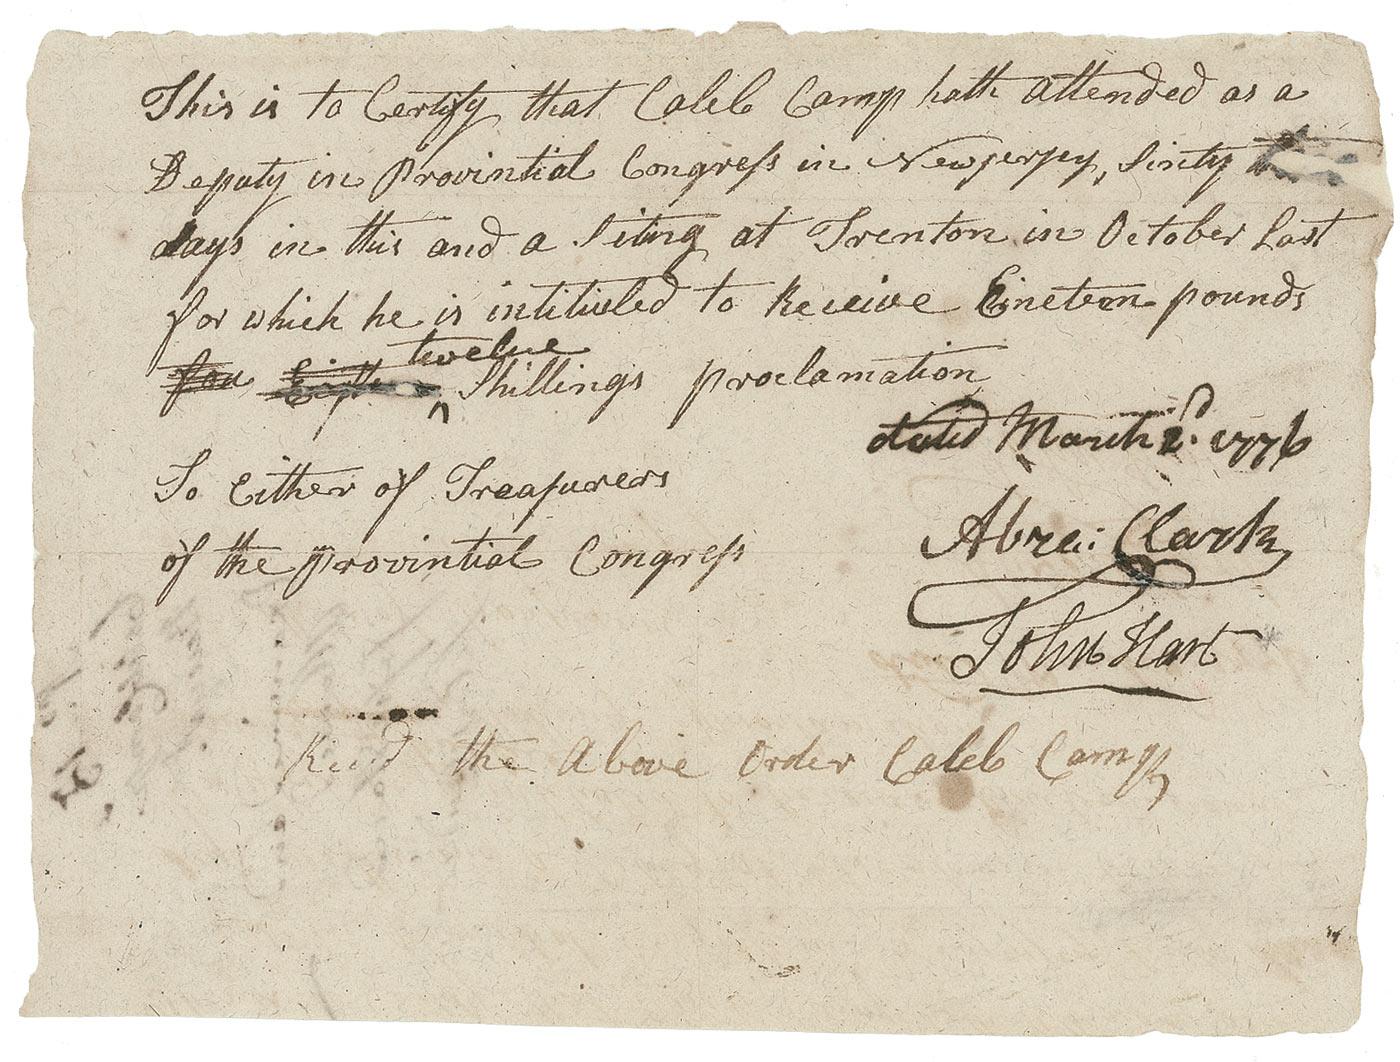 This is to Certify that Caleb Camp hath attended as a
Deputy in Provintial Congreſs in Newjerſey, Sixty
days in this and a Siting at Trenton in October Last
for which he is intituled to Receive Eineteen pounds
twelve
Shillings proclamation
dated March 2.d 1776
To Either of Treaſurers
of the Provintial Congreſs
Abra: Clark
John Hart
Recd the Above Order Caleb Camp